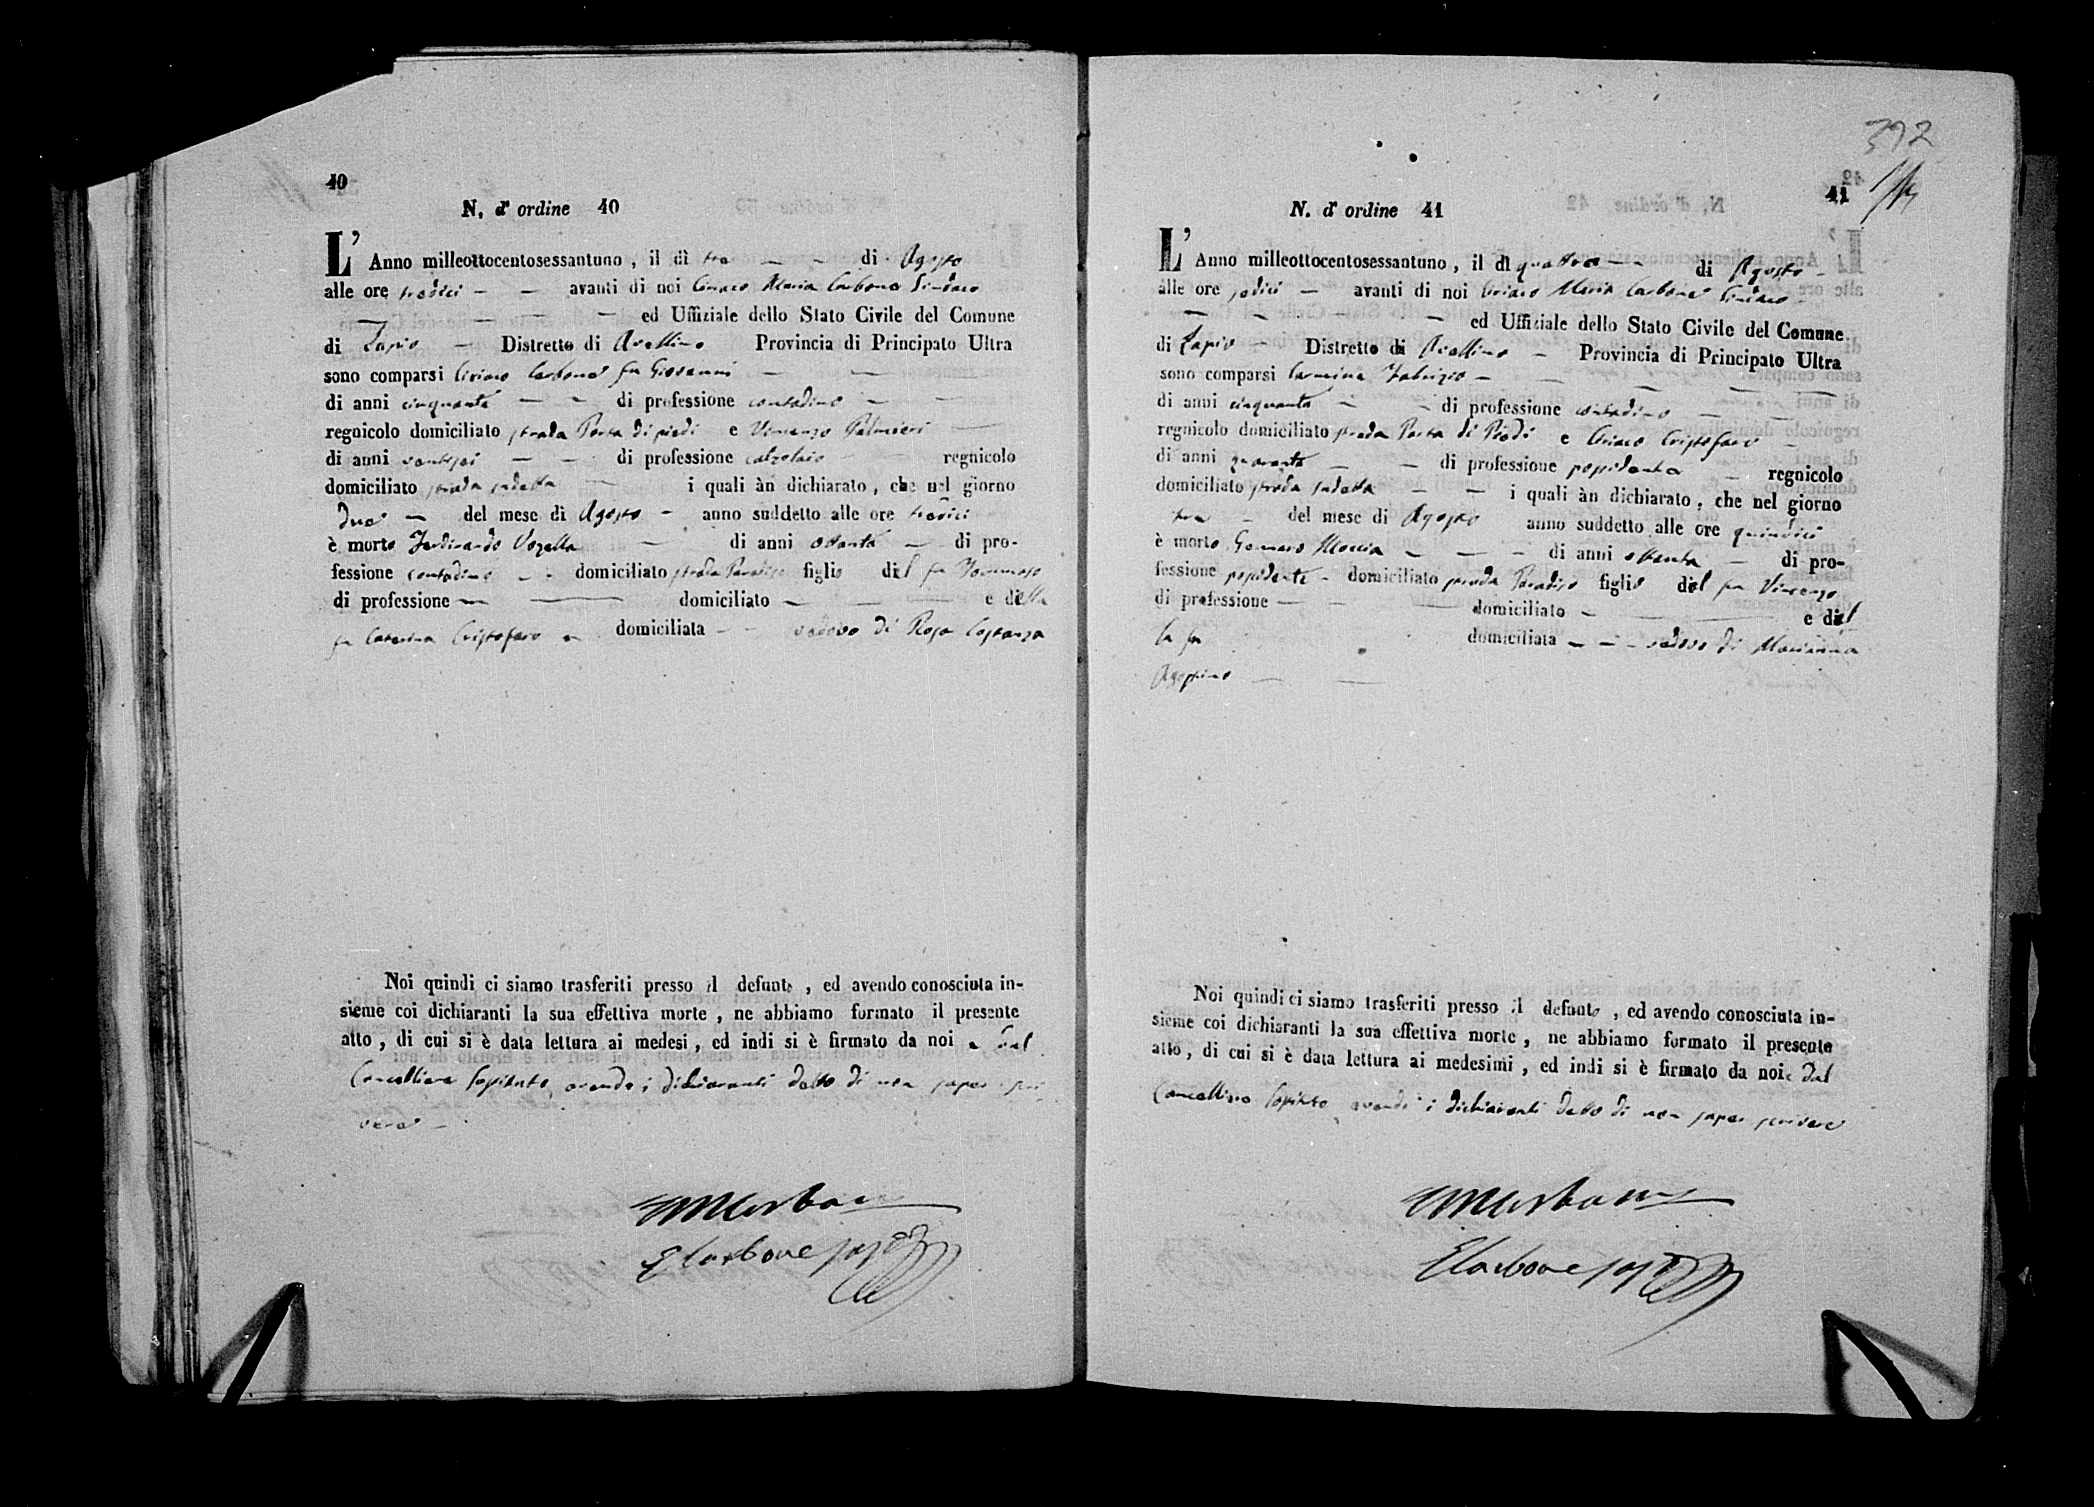 40
N. d' ordine 40
L' Anno milleottocentosessantuno, il dì tre — — di Agosto
alle ore tredici — — avanti di noi Ciriaco Maria Carbone Sindaco
— — — — ed Uffiziale dello Stato Civile del Comune
di Lapio — Distretto di Avellino Provincia di Principato Ultra
sono comparsi Ciriaco Carbone fu Giovanni — —
di anni cinquanta — — di professione contadino — —
regnicolo domiciliato strada Porta di piedi e Vincenzo Palmieri —
di anni ventisei — — di professione calzolaio — regnicolo
domiciliato strada sudetta — i quali àn dichiarato, che nel giorno
due — del mese di Agosto — anno suddetto alle ore tredici
è morto Ferdinando Vozella — di anni ottanta — di pro-
fessione contadino — — domiciliato strada Paradiso figlio del fu Tommaso
di professione — — domiciliato — — — e della
fu Caterina Cristofaro — domiciliata — — vedovo di Rosa Costanza
Noi quindi ci siamo trasferiti presso il defunto, ed avendo conosciuta in-
sieme coi dichiaranti la sua effettiva morte, ne abbiamo formato il presente
atto, di cui si è data lettura ai medesi, ed indi si è firmato da noi e dal
Cancelliere sostituto, avendo i dichiaranti detto di non saper scri
vere —
CMCarbone
E Carbone sost
392
41
N. d' ordine 41
L' Anno milleottocentosessantuno, il dì quattro — — di Agosto —
alle ore sedici — avanti di noi Ciriaco Maria Carbone Sindaco —
— — — — ed Uffiziale dello Stato Civile del Comune
di Lapio — Distretto di Avellino — Provincia di Principato Ultra
sono comparsi Carmine Fabrizio — — — —
di anni cinquanta — — di professione contadino — —
regnicolo domiciliato strada Porta di Piedi e Ciriaco Cristofaro —
di anni quaranta — — di professione possidente — regnicolo
domiciliato strada sudetta — — i quali àn dichiarato, che nel giorno
tre — del mese di Agosto anno suddetto alle ore quindici
è morto Gennaro Moccia — — — di anni ottanta — di pro-
fessione possidente — domiciliato strada Paradiso figlio del fu Vincenzo
di professione — — — domiciliato — — e del
la fu domiciliata — — — vedovo di Marianna
Agostino — —
Noi quindi ci siamo trasferiti presso il defunto, ed avendo conosciuta in-
sieme coi dichiaranti la sua effettiva morte, ne abbiamo formato il presente
atto, di cui si è data lettura ai medesimi, ed indi si è firmato da noi e dal
Cancelliere sostituto, avendo i dichiaranti detto di non saper scrivere
CMCarbone
E Carbone sost